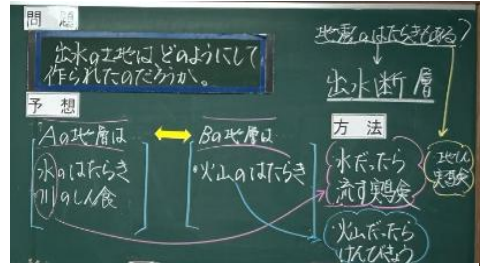 問題
出水の土地は、どのようにして
作られたのだろうか。
地震のはたらきもある?
出水断層
予想
Aの地層は
水のはたらき
川のしん食
Bの地層は
・火山のはたらき
方法
水だったら
流す実験
地しん
実験
火山だったら
けんびきょう